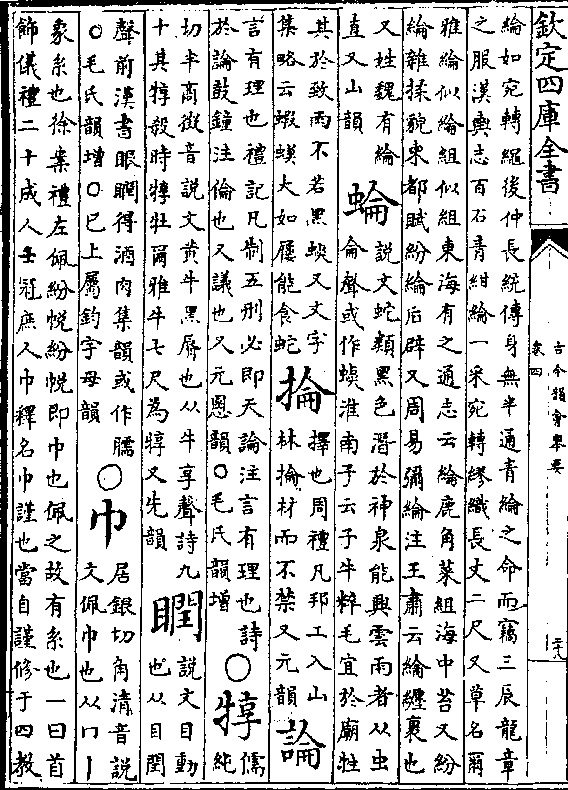 欽定四庫全書
古今韻會舉要
卷四
二十八
綸如宛轉繩後仲長統傳身無半通青綸之命而竊三辰龍章
之服漢輿志百石青紺綸一采宛轉繆織長丈二尺又草名爾
雅綸似綸組似組東海有之通志云綸鹿角菜組海中苔又紛
綸雜揉貌東都賦紛綸后辟又周易彌綸注王肅云綸纏裹也
又姓魏有綸
直又山韻
蜦
説文蛇類黑色潛於神泉能興雲雨者从虫
侖聲或作蜧淮南子云子牛粹毛宜於廟牲
其於致雨不若黑蜧又文字
集略云蝦蟆大如屨能食蛇
掄
擇也周禮凡邦工入山
林掄材而不禁又元韻
論
言有理也禮記凡制五刑必即天論注言有理也詩
於論鼓鐘注倫也又議也又元恩韻○毛氏韻增
○犉
儒
純
切半商徵音説文黄牛黑脣也从牛享聲詩九
十其犉殺時犉牡爾雅牛七尺為犉又先韻
瞤
説文目動
也从目閏
聲前漢書眼瞤得酒肉集韻或作
○毛氏韻增○已上屬鈞字母韻
○巾
居銀切角清音説
文佩巾也从冂丨
象糸也徐案禮左佩紛帨紛帨即巾也佩之故有糸也一曰首
飾儀禮二十成人士冠庶人巾釋名巾謹也當自謹修于四教